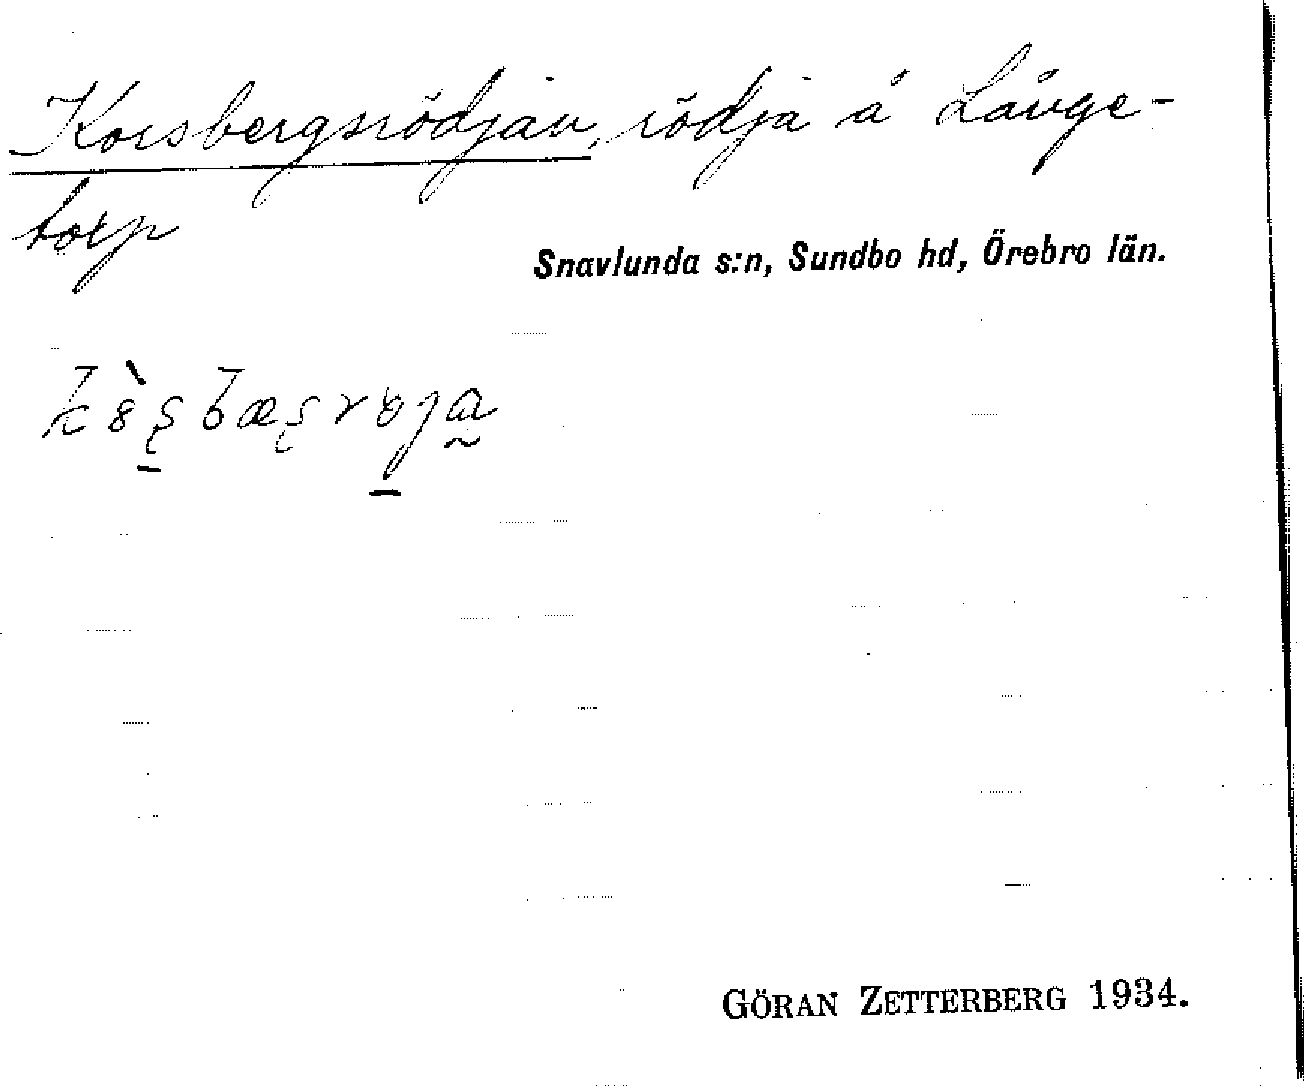 Korsbergsrödjan, rödja å Långe-
torp
Snavlunda s:n, Sundbo hd, Örebro län.
GÖRAN ZETTERBERG 1934.